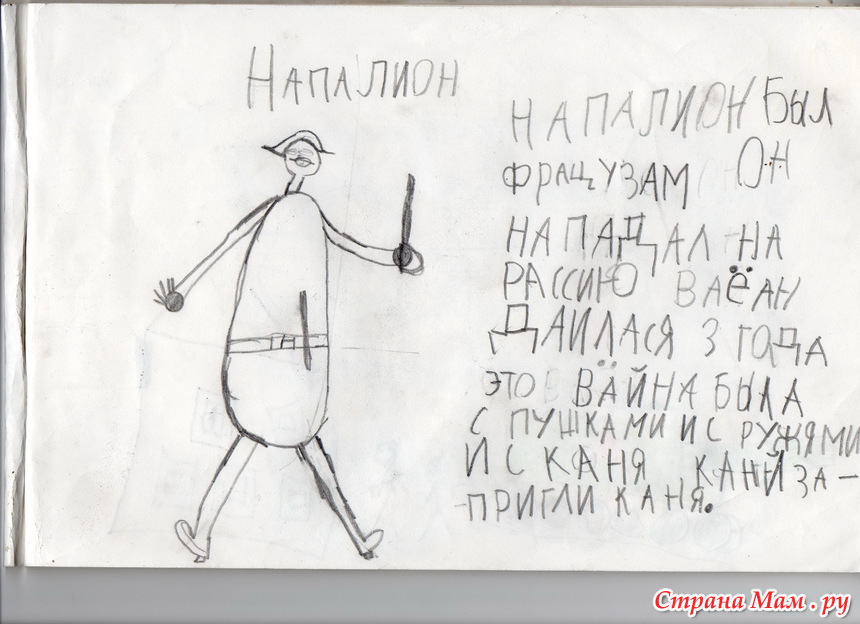 НАПАЛИОН
НАПАЛИОН БЫЛ
ФРАЦУЗАМ ОН
НАПАДАЛ НА
РАССИЮ ВАЁАН
ДАИЛАСЯ 3 ГОДА
ЭТО ВАЙНА БЫЛА
С ПУШКАМИ И С РУЖЯМИ
И С КАНЯ КАНЙ ЗА-
ПРИГЛИ КАНЯ.
Страна Мам.ру